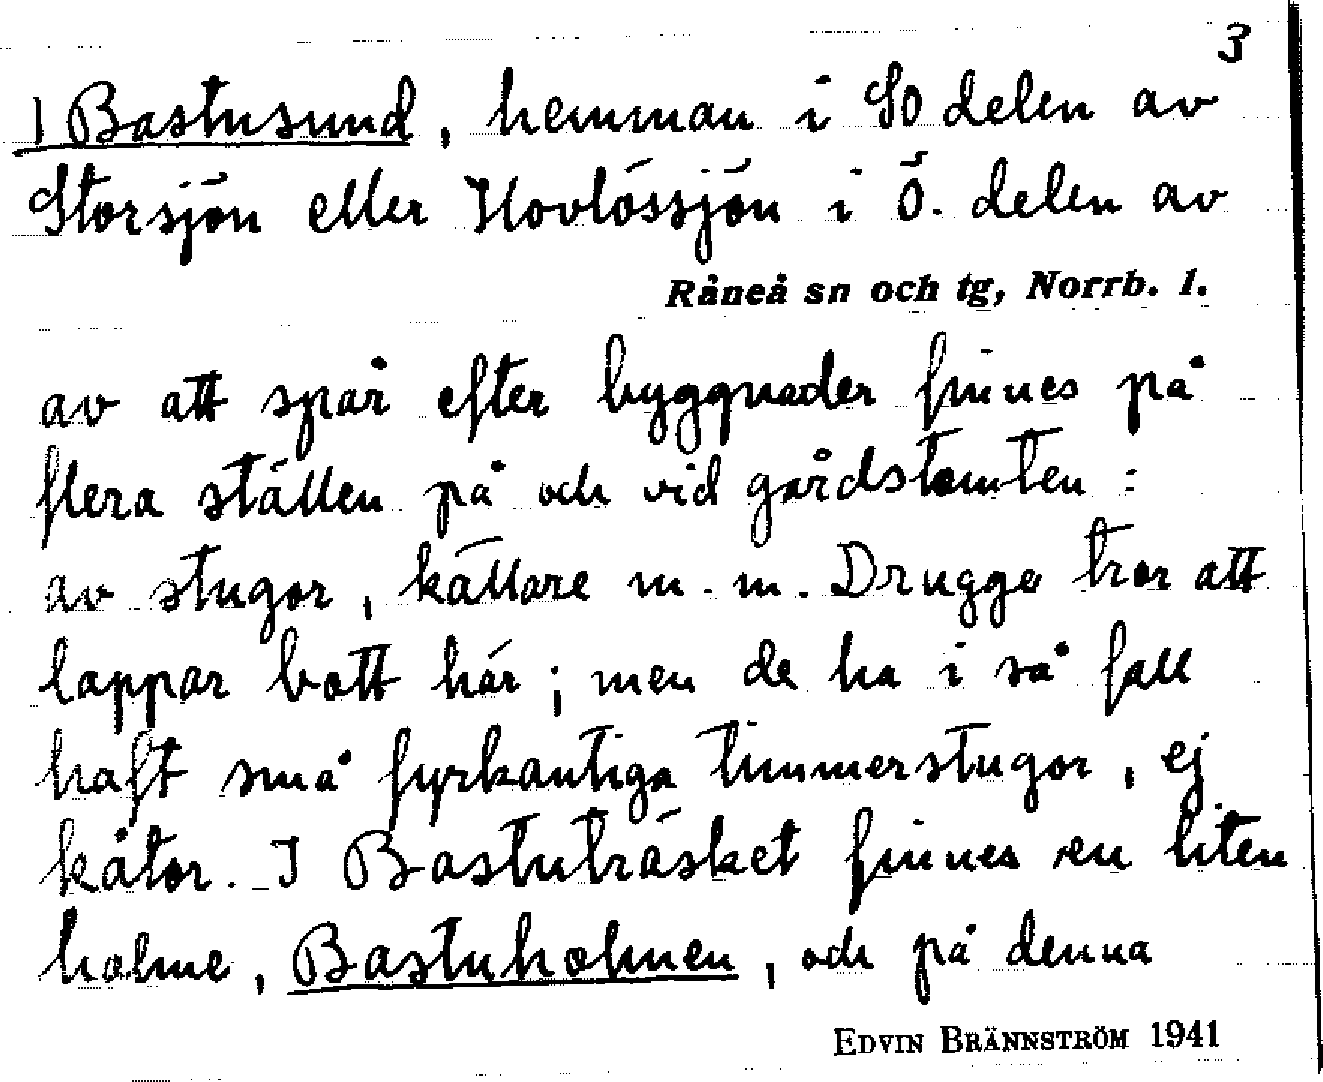 3
1 Bastusund, hemman i SO delen av
Storsjön eller Hovlössjön i Ö. delen av
Råneå sn och tg, Norrb. l.
av att spår efter byggnader finnes på
flera ställen på och vid gårdstomten:
av stugor, källare m. m. Drugge tror att
lappar bott här; men de ha i så fall
haft små fyrkantiga timmerstugor, ej
kåtor. I Bastuträsket finnes en liten
holme, Bastuholmen, och på denna
EDVIN BRÄNNSTRÖM 1941